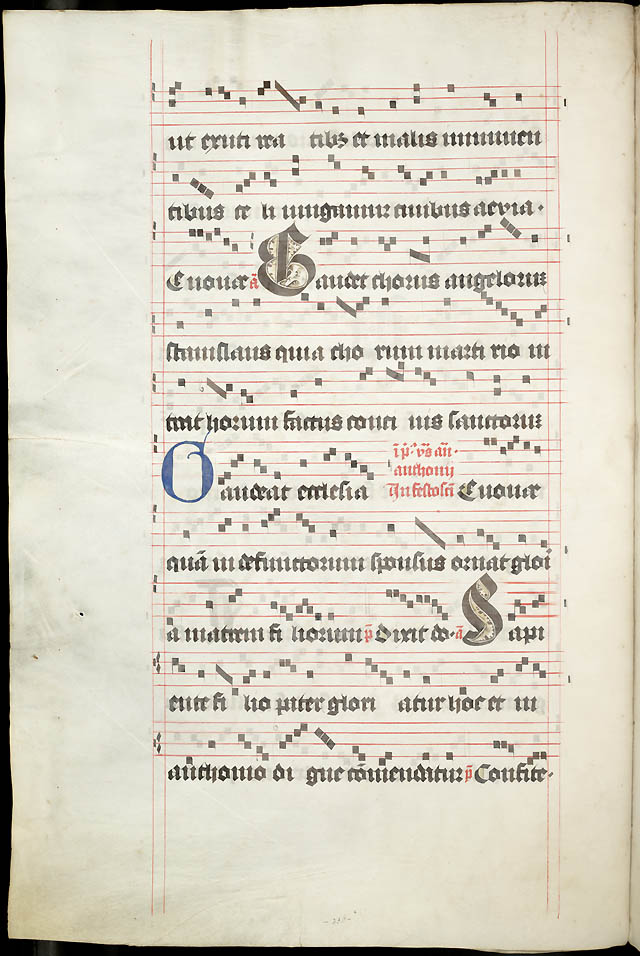 ut exuti rea tibꝫ et malis imminen
tibus te li iungamur civibus aevia.
Euouae a᷃ Gaudet chorus angelorum
stanislaus quia cho rum marti rio in
trat horum factus conci vis sanctorum
i᷃ p᷃. vs̃ añ.
anthonij
Gaudeat ecclesia In festo sc̃i Euouae
quā in defunctorum sponsus ornat gloꝛi
a matrem fi liorum p̃ Dixit do. ã Sapi
ente fi lio pater glori atur hoc et in
anthonio di gne cōmenditur p̃ Confite.